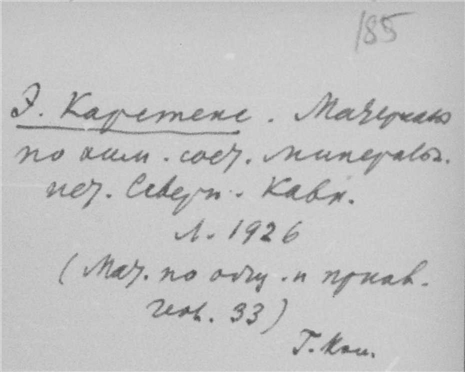 185
Э. Карстенс. Материалы
по хим. сост. минеральн.
ист. Северн. Кавк.
Л. 1926
(Мат. по общ. и прикл.
геол. 33)
Г. Ком.